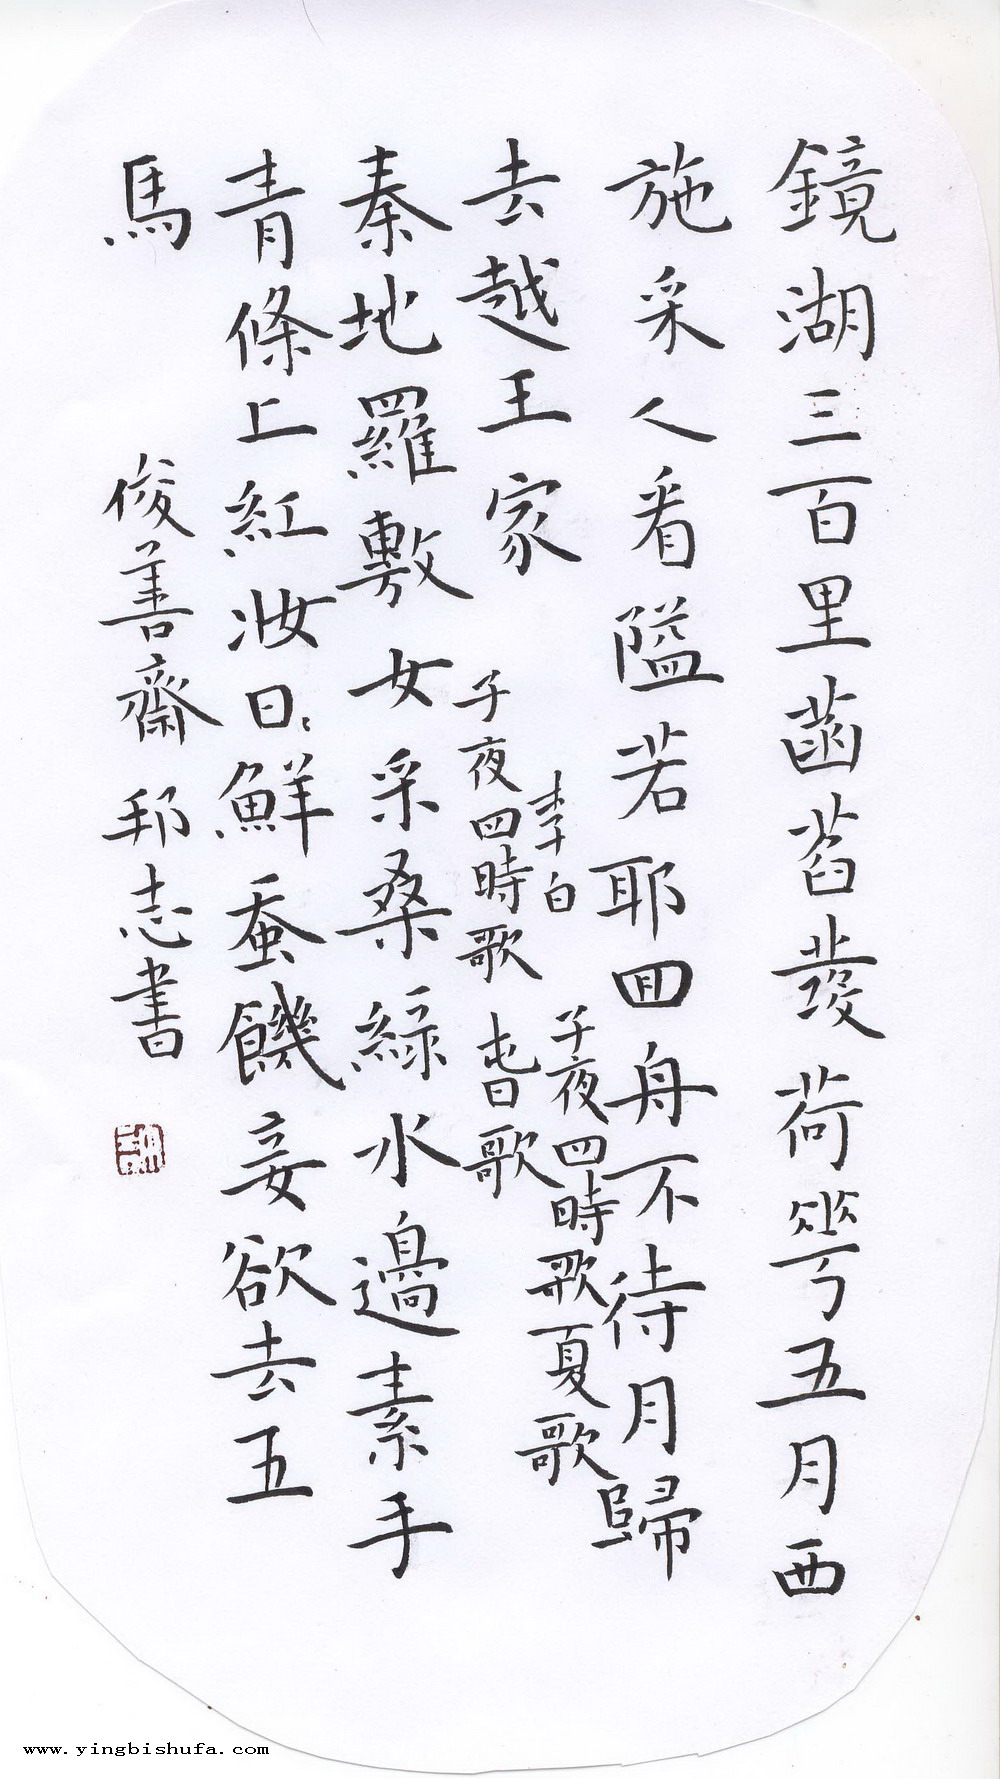 鏡湖三百里菡萏發荷華五月西
施采人看隘若耶囬舟不待月歸
去越王家
李白 子夜四時歌夏歌
子夜四時歌 旾歌
秦地羅敷女采桑綠水邊素手
青條上紅妝日〻鮮蚕饑妾欲去五
馬
俊善齋 邦志書
www.yingbishufa.com